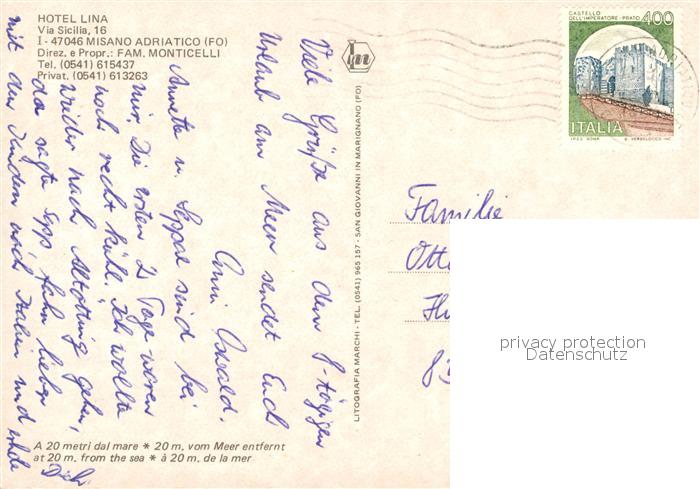 HOTEL LINA
Via Sicilia, 16
I - 47046 MISANO ADRIATICO (FO)
Direz. e Propr.: FAM. MONTICELLI
Tel. (0541) 615437
Privat. (0541) 613263
Viele Grüße aus dem 8-tägigen
Urlaub am Meer sendet Euch
Anni Oswald.
Annette u. Seppal sind bei
mir. Die ersten 2 Tage waren
noch recht kühl. Ich wollte
wieder nach Altötting gehen,
da sagte Sepp fahr lieber
mit den Kindern nach Italien und
LITOGRAFIA MARCHI - TEL. (0541) 965 157 - SAN GIOVANNI IN MARIGNANO (FO)
CASTELLO
DELL'IMPERATORE - PRATO 400
ITALIA
Familie
Otto
privacy protection
Datenschutz
A 20 metri dal mare * 20 m. vom Meer entfernt
at 20 m. from the sea * à 20 m. de la mer